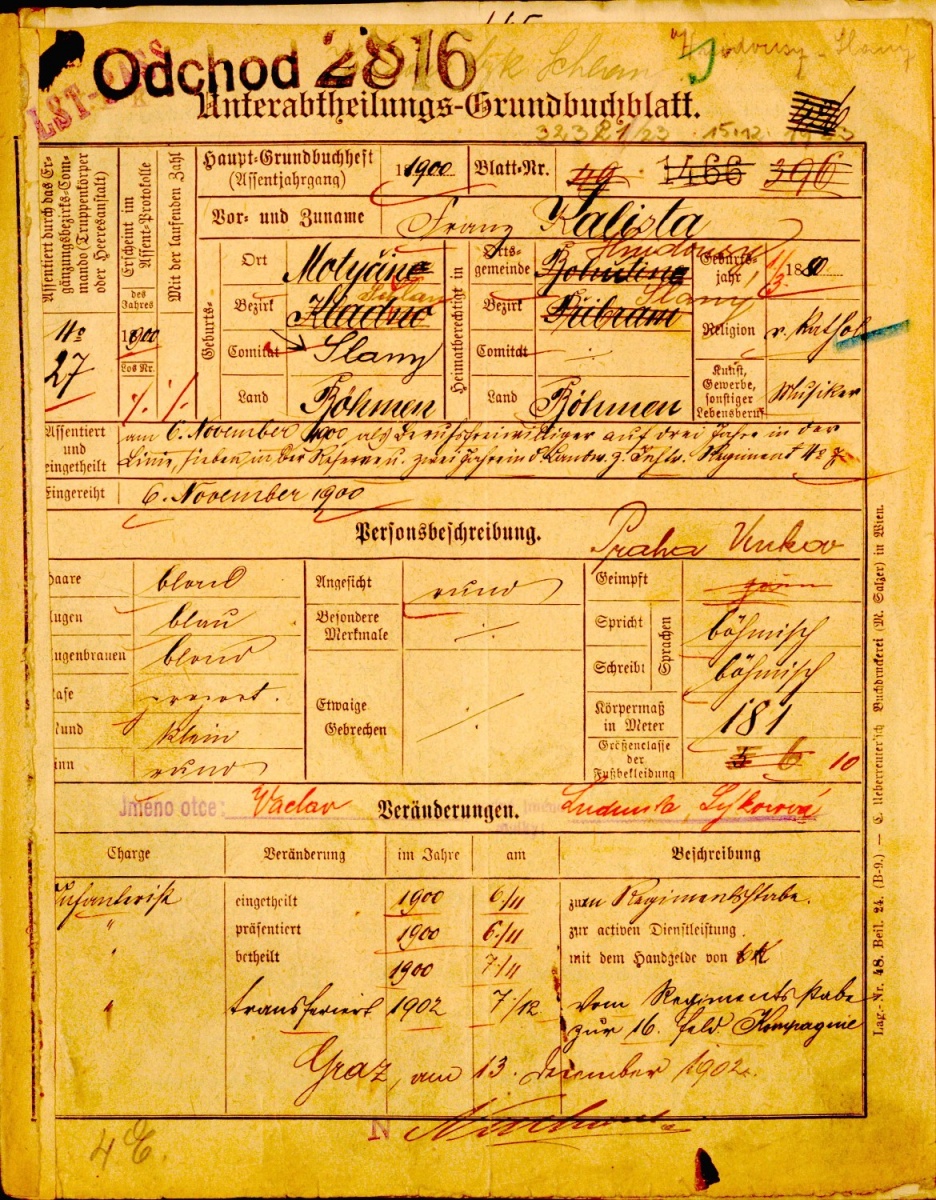 Odchod 2816
LST-RES
Unterabtheilungs-Grundbuchblatt.
Assentiert durch das Ergänzungsbezirks-Commando (Truppenkörper oder Heeresanstalt)
Erscheint im Assent-Protokolle
Mit der laufenden Zahl
des Jahres
1900
Los Nr.
Nº 27
Haupt-Grundbuchheft (Assentjahrgang) 1900 Blatt-Nr. 49 1466 396
Vor- und Zuname Franz Kalista
Geburts-
Ort Motyčin
Bezirk Kladno
Comitat Slany
Land Böhmen
Heimatberechtigt in
Ortsgemeinde
Bezirk Přibram Slany
Comitat ·/·
Land Böhmen
Geburtsjahr 1/3 1880
Religion r. kathol
Kunst, Gewerbe, sonstiger Lebensberuf Musiker
Assentiert und eingetheilt am 6. November 1900 als Berufsfreiwilliger auf drei Jahre in der
Linie, sieben in der Reserve u. zwei Jahre in d. Landw. z. Inftr. Regiment
Eingereiht 6. November 1900
Personsbeschreibung.
Praha Venkov
Haare blond
Augen blau
Augenbrauen blond
Nase
Mund klein
Kinn rund
Angesicht rund
Besondere Merkmale ·/·
Etwaige Gebrechen ·/·
Geimpft
Sprachen
Spricht böhmisch
Schreibt böhmisch
Körpermaß in Meter 181
Größenclasse der Fußbekleidung 5 6 10
Jméno otce: Václav
Veränderungen.
Ludmila
Charge Veränderung im Jahre am Beschreibung
Infanterist eingetheilt 1900 6/11 zum Regimentsstabe.
" präsentiert 1900 6/11 zur activen Dienstleistung.
" betheilt 1900 7/11 mit dem Handgelde von
" transferiert 1902 7/12 vom Regimentsstabe
zur 16. Feld Kompagnie
Graz, am 13. December 1902.
N
4 E.
Lag.-Nr. 48. Beil. 24. (B-9.) — C. Ueberreuter'sch Buchdruckerei (M. Salzer) in Wien.